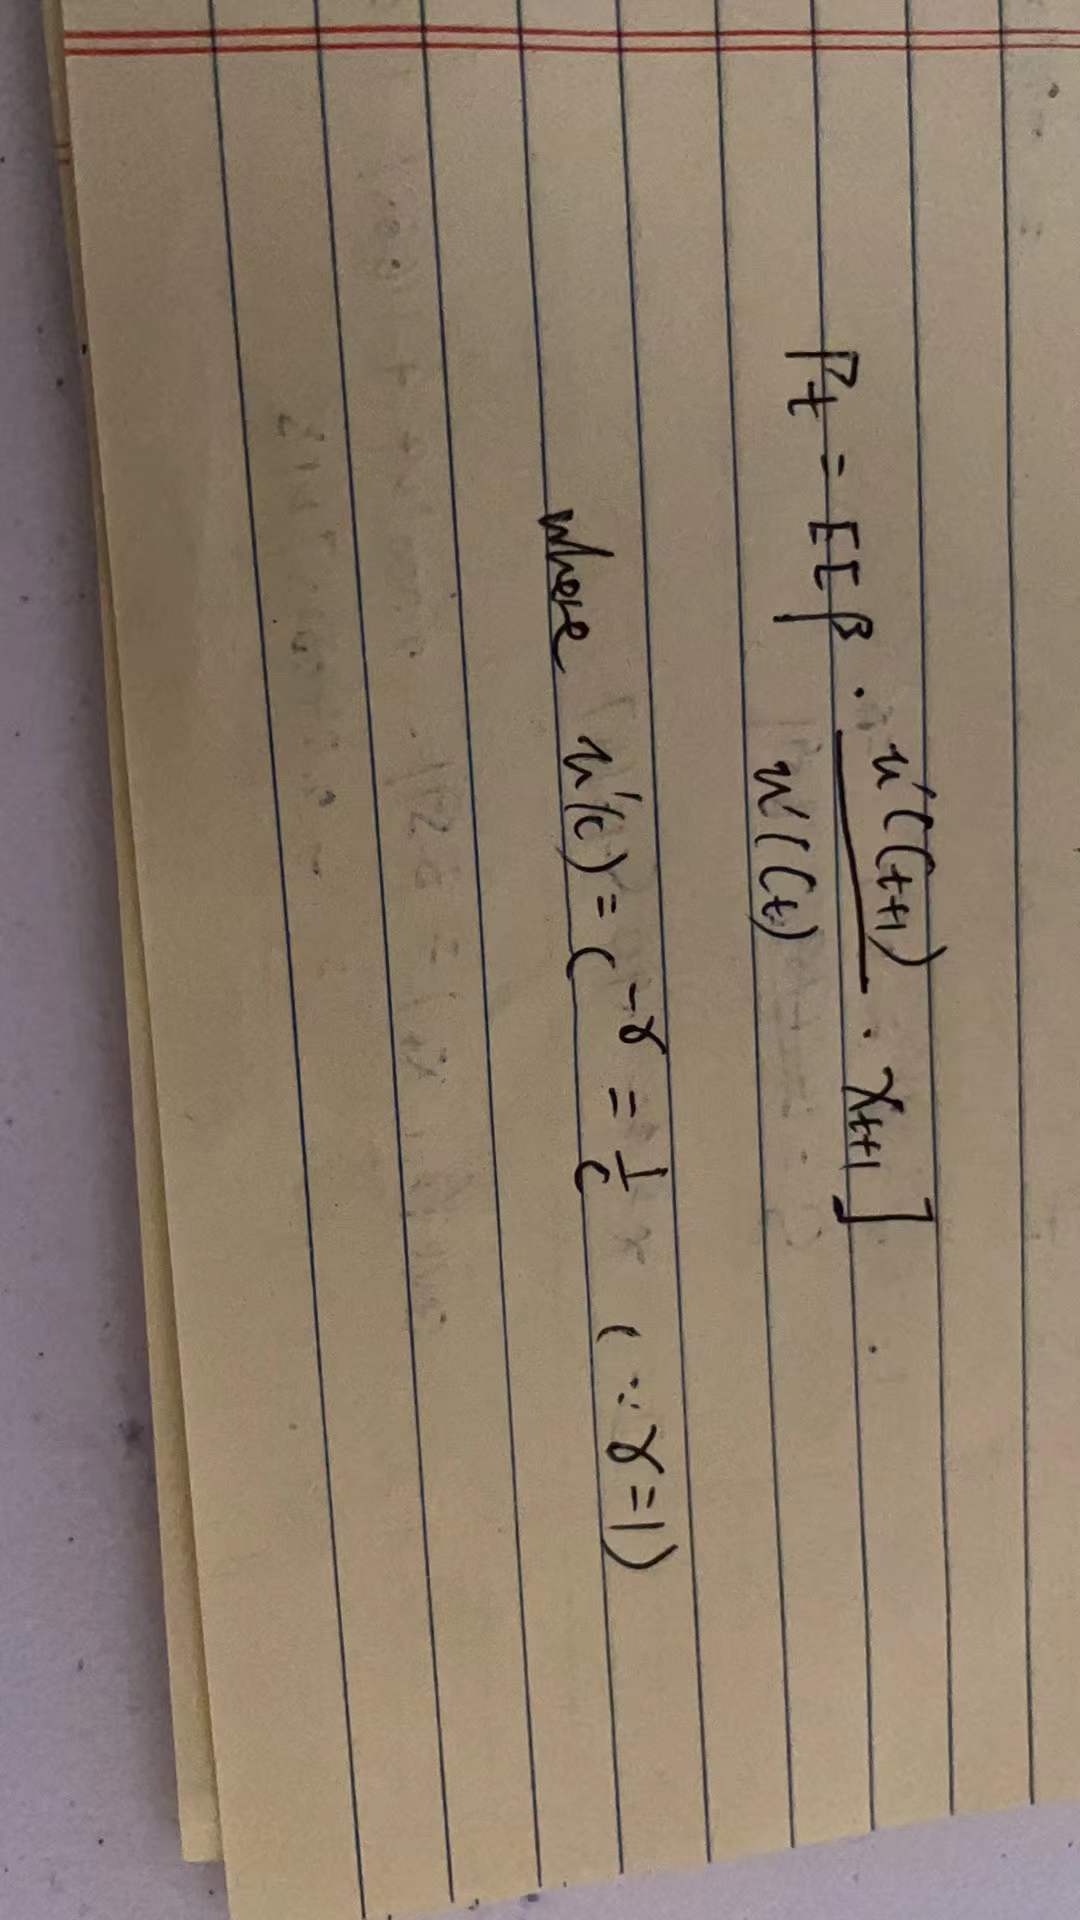 Pt = E[β · u'(Ct+1) / u'(Ct) · Xt+1]
where u'(c) = c^-γ = 1/c (∵ γ=1)